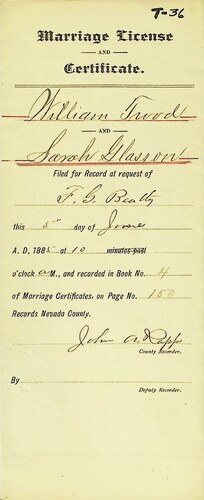 T-36
Marriage License
AND
Certificate.
William Trood
AND
Sarah Glasson
Filed for Record at request of
F. G. Beatty
this 5th day of June
A. D. 1885 at 10 minutes past
o'clock A M., and recorded in Book No. 4
of Marriage Certificates, on Page No. 150
Records Nevada County.
John A. Rapp
County Recorder.
By
Deputy Recorder.